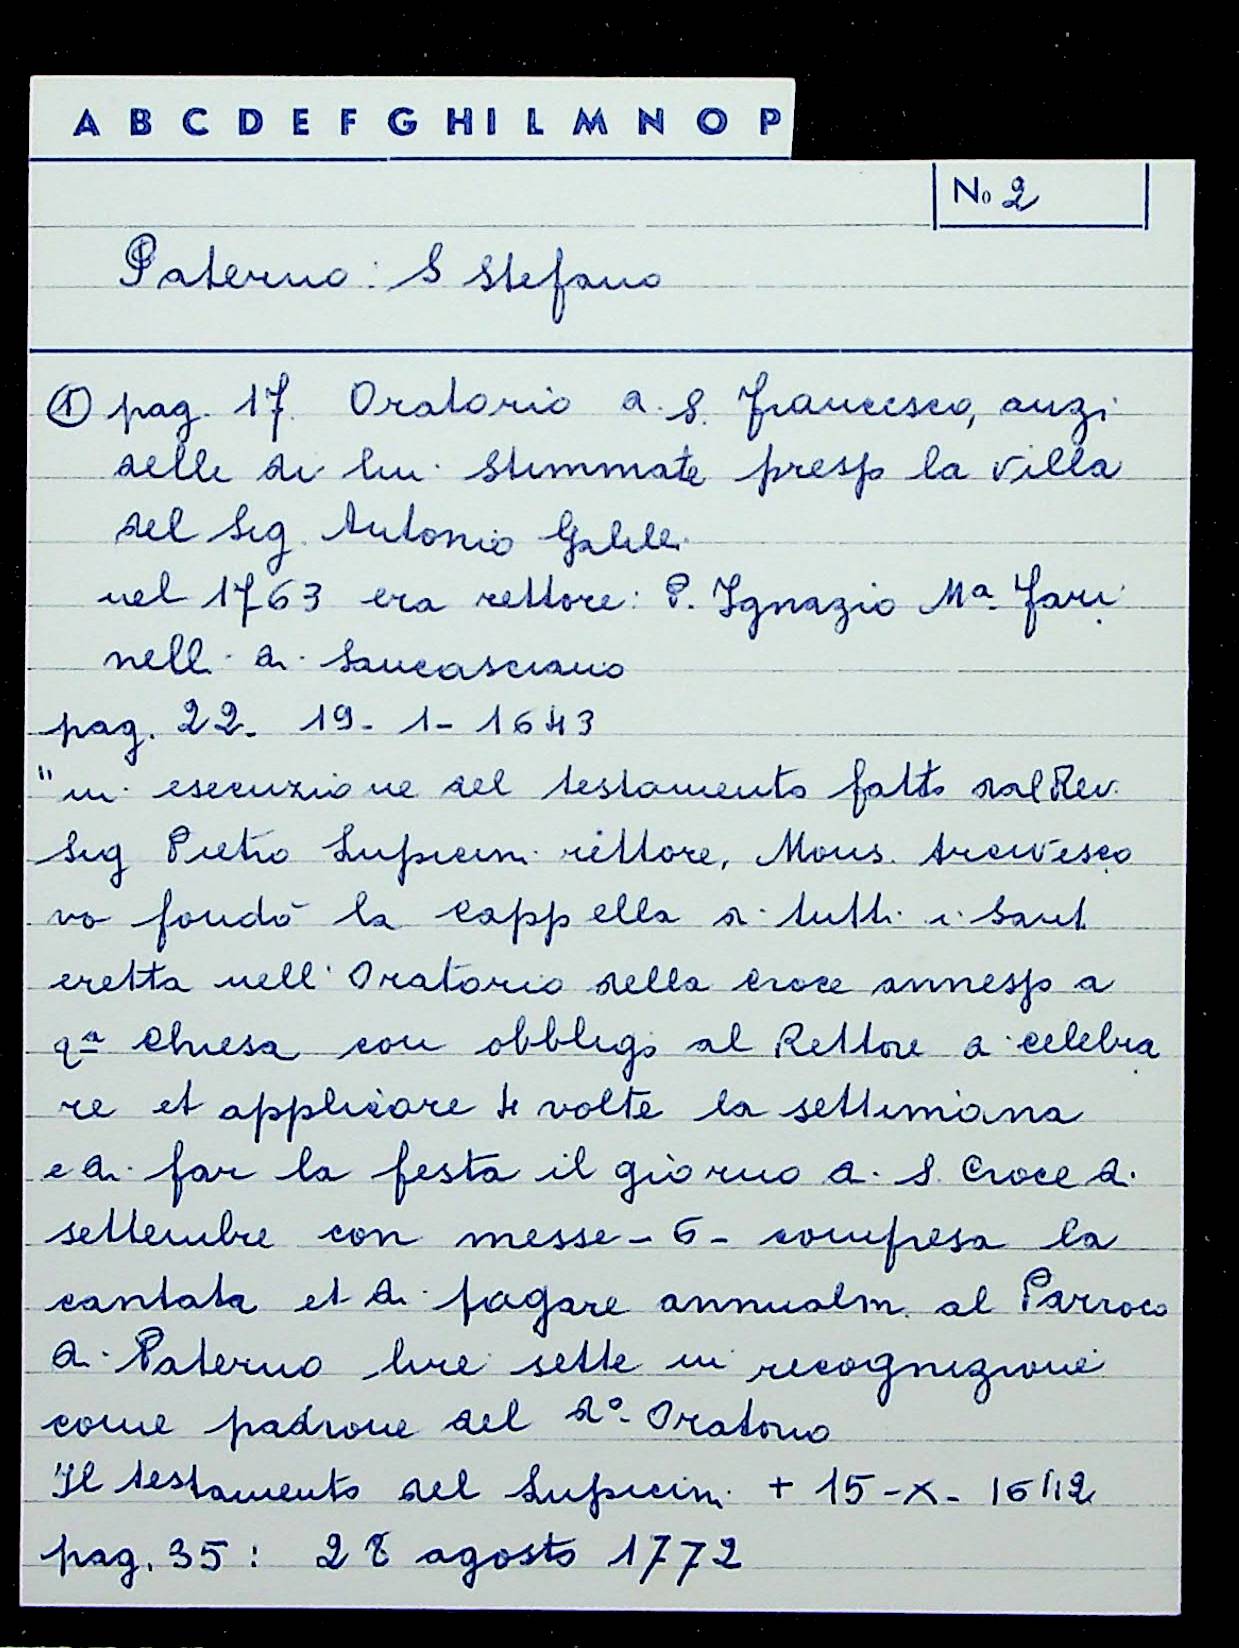 A B C D E F G H I L M N O P
No 2
Paterno: S Stefano
① pag. 17. Oratorio a. S. Francesco, anzi
delle di lui Stimmate presso la villa
del Sig. Antonio Galilli
nel 1763 era rettore: P. Ignazio Mª. Fari
nelli di Sancasciano
pag. 22. 19-1-1643
"in esecuzione del testamento fatto dal Rev.
Sig Pietro Supicini rettore, Mons. Arcivesco
vo fondò la cappella di tutti i Santi
eretta nell'Oratorio della Croce annesso a
qª Chiesa con obbligo al Rettore a celebra
re et applicare 4 volte la settimana
e di far la festa il giorno di S. Croce di
settembre con messe - 6 - compresa la
cantata et di pagare annualm. al Parroco
di Paterno lire sette in recognizione
come padrone del dº. Oratorio
Il testamento del Supicini + 15-X-1642
pag. 35: 28 agosto 1772